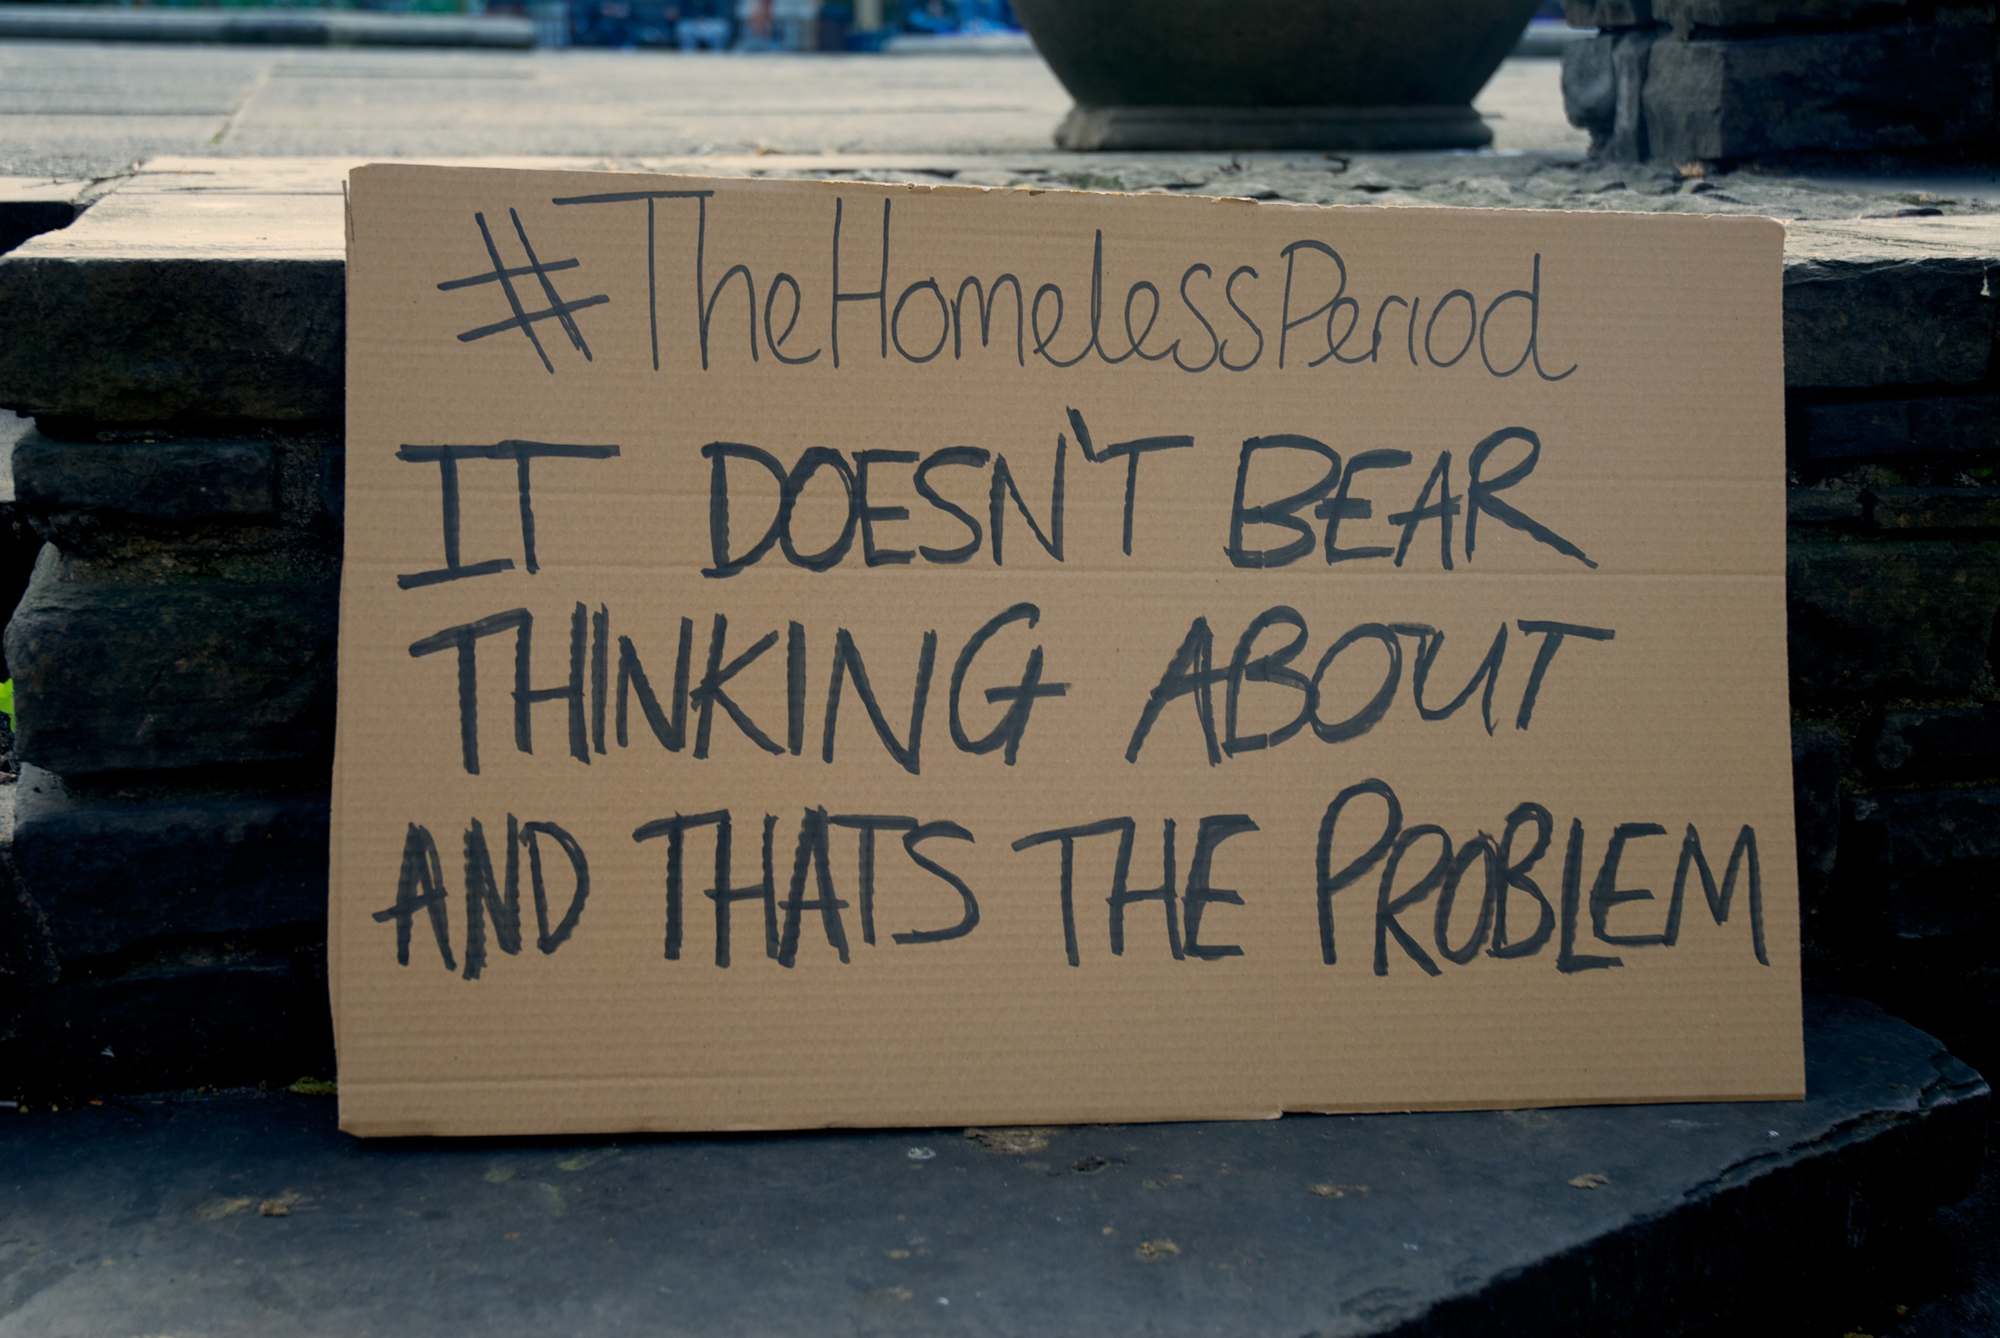 #TheHomelessPeriod
IT DOESN'T BEAR
THINKING ABOUT
AND THATS THE PROBLEM